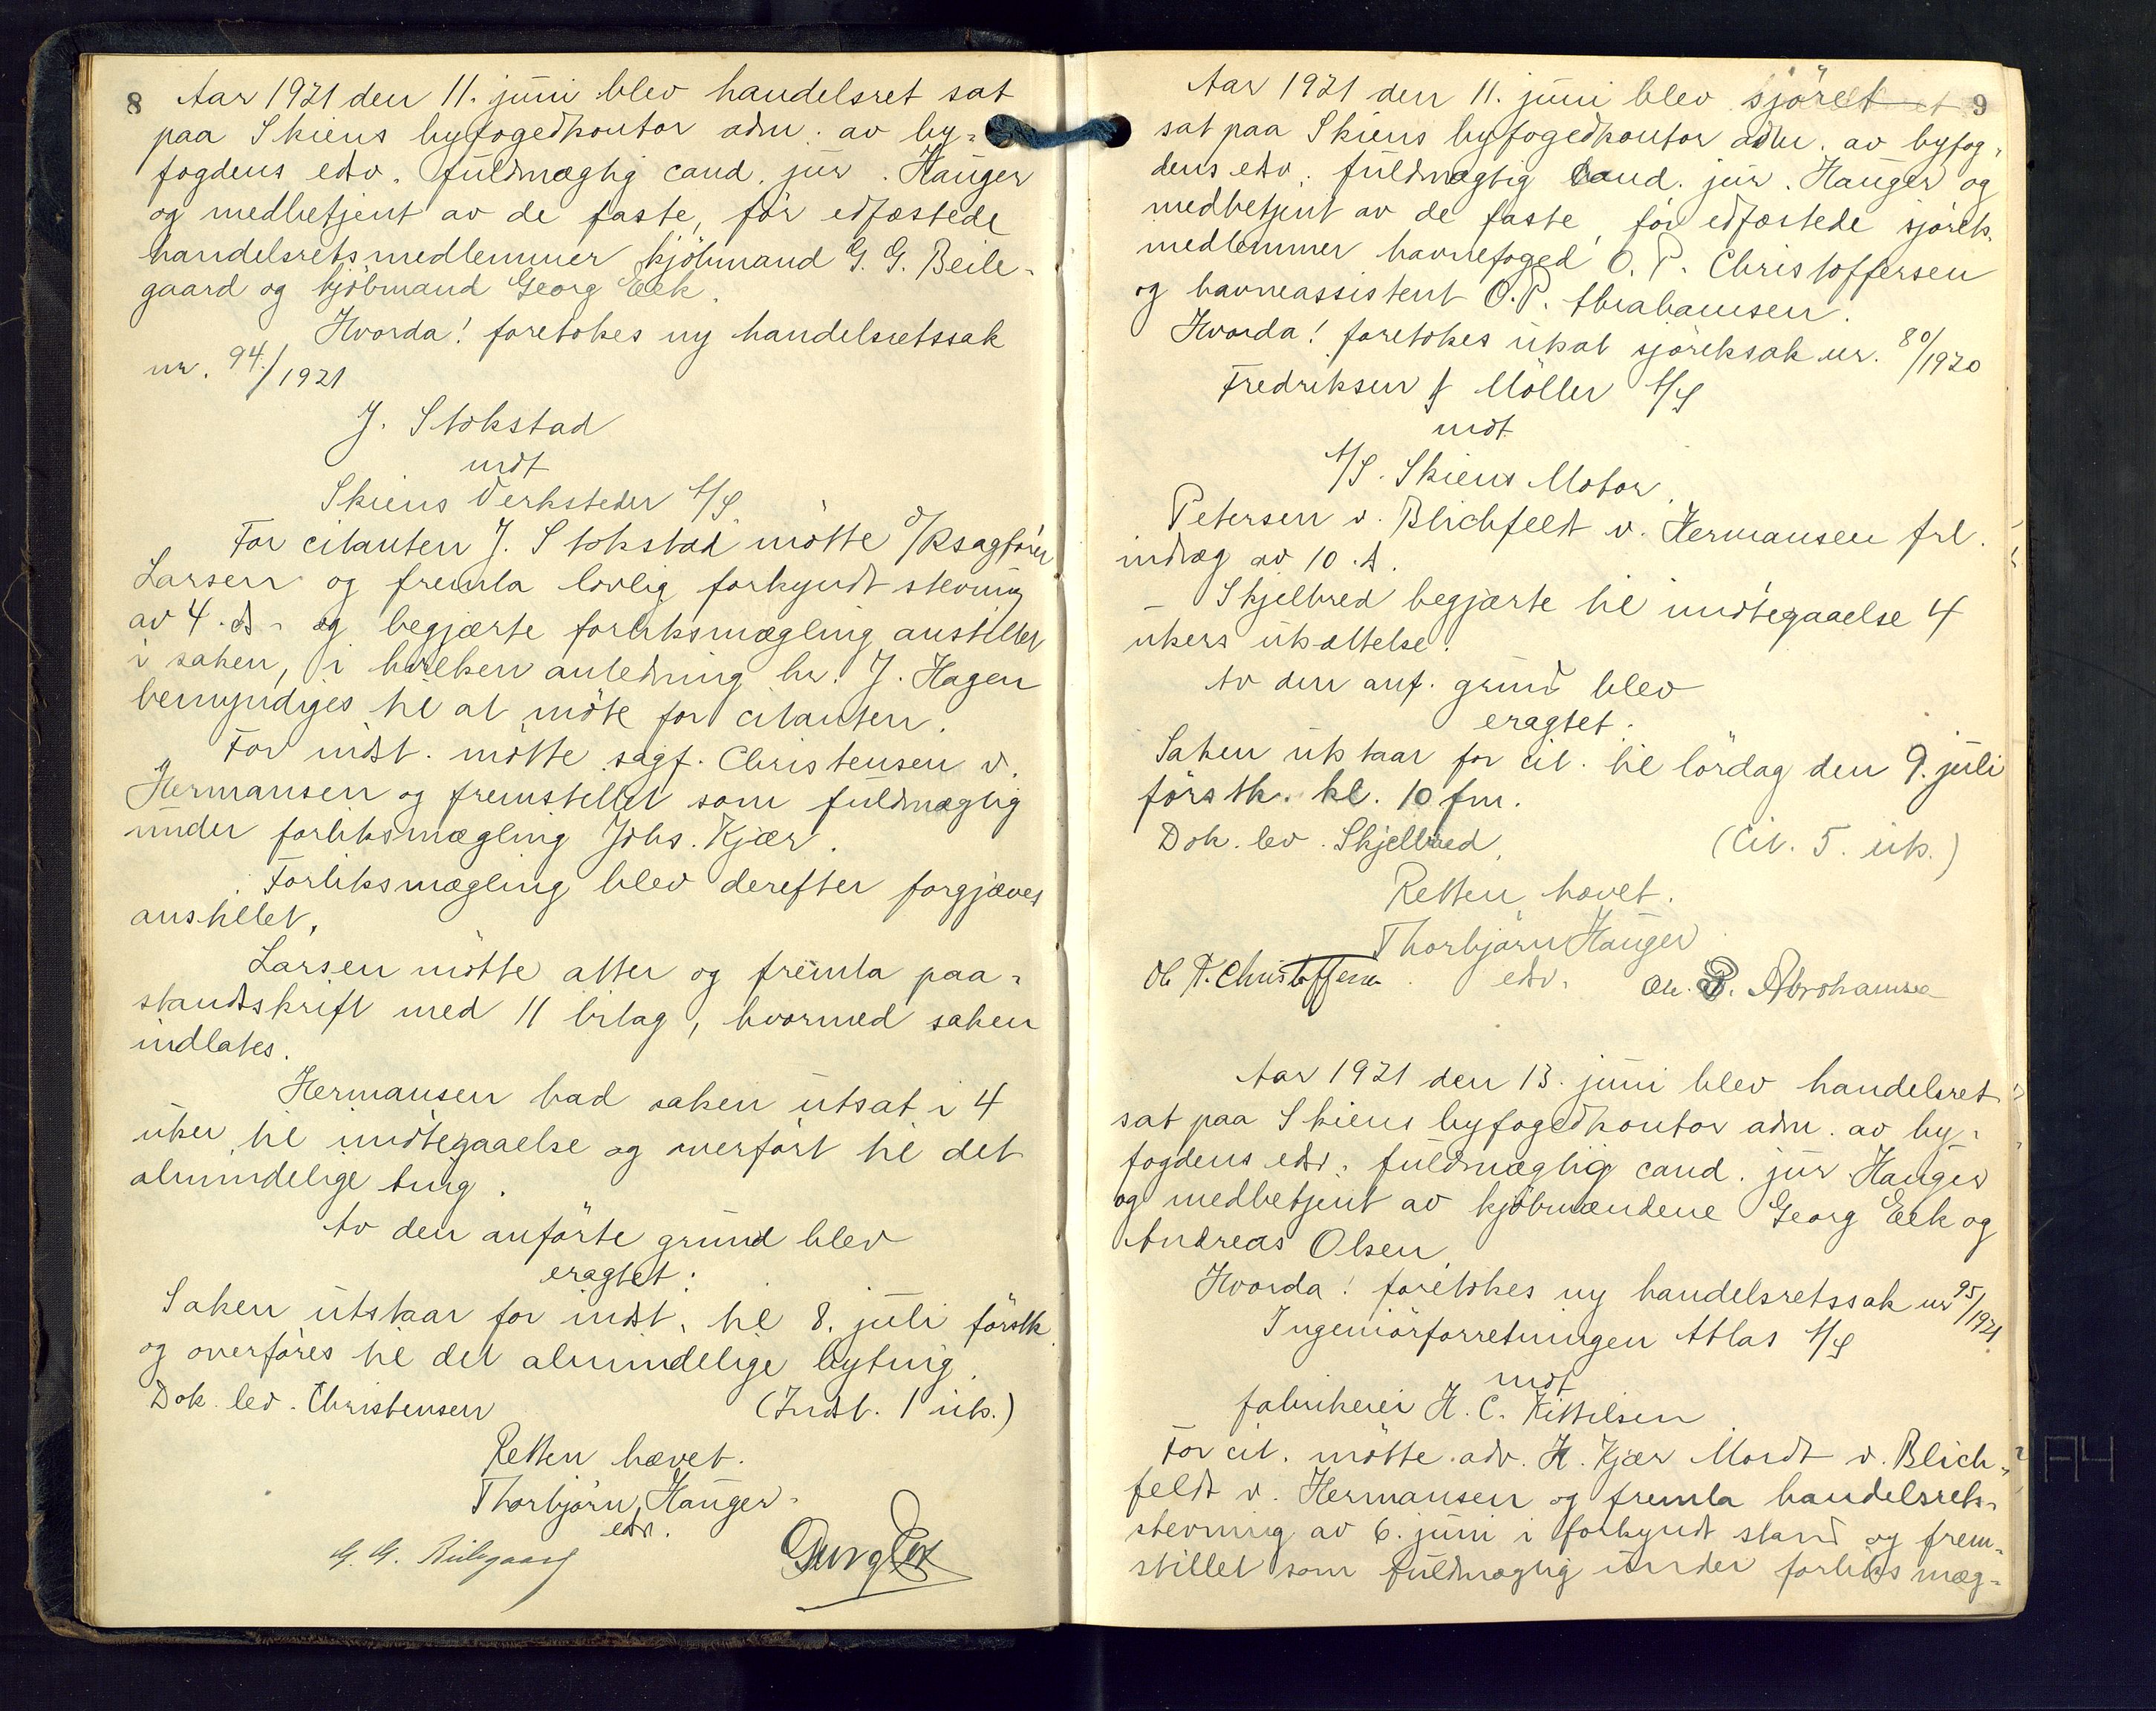 8
Aar 1921 den 11. juni blev handelsret sat
paa Skiens byfogedkontor adm. av by-
fogdens edsv. fuldmægtig cand. jur. Hauger
og medbetjent av de faste, før edfæstede
handelsretsmedlemmer kjöbmand G. G. Beile-
gaard og kjöbmand Georg Eek.
Hvorda! foretokes ny handelsretssak
nr. 94/1921
J. Stokstad
mot
Skiens Verksteder A/S
For citanten J. Stokstad mötte o/Rsagförer
Larsen og fremla lovlig forkyndt stevning
av 4. ds. og begjærte forliksmægling anstillet
i saken, i hvilken anledning hr. J. Hagen
bemyndiges til at möte for citanten.
For indst. mötte sagf. Christensen v.
Hermansen og fremstillet som fuldmægtig
under forliksmægling Johs. Kjær.
Forliksmægling blev derefter forgjæves
anstillet.
Larsen mötte atter og fremla paa-
standsskrift med 11 bilag, hvormed saken
indlates.
Hermansen bad saken utsat i 4
uker til imötegaaelse og overfört til det
almindelige ting.
Av den anförte grund blev
eragtet:
Saken utstaar for indst. til 8. juli förstk.
og overföres til det almindelige byting.
Dok. lev. Christensen (Indst. 1 uts.)
Retten hævet.
Thorbjörn Hauger
edsv.
G. G. Beilegaard Georg Eek
9
Aar 1921 den 11. juni blev sjöret
sat paa Skiens byfogedkontor adm. av byfog-
dens edsv. fuldmægtig cand. jur. Hauger og
medbetjent av de faste, før edfæstede sjörets-
medlemmer havnefoged O. P. Christoffersen
og havneassistent O. P. Abrahamsen.
Hvorda! foretokes utsat sjöretssak nr. 80/1920
Fredriksen & Möller A/S
mot
A/S. Skiens Motor.
Petersen v. Blichfeldt v. Hermansen frl.
indlæg av 10. ds.
Skjelbred begjærte til imötegaaelse 4
ukers utsættelse.
Av den anf. grund blev
eragtet:
Saken utstaar for cit. til lördag den 9. juli
förstk. kl. 10 fm.
Dok. lev. Skjelbred. (Cit. 5. uts.)
Retten hævet.
Thorbjörn Hauger
edsv.
Ole P. Christoffersen Ole. P. Abrahamsen
Aar 1921 den 13. juni blev handelsret
sat paa Skiens byfogedkontor adm. av by-
fogdens edsv. fuldmægtig cand. jur Hauger
og medbetjent av kjöbmændene Georg Eek og
Andreas Olsen.
Hvorda! foretokes ny handelsretssak nr 95/1921.
Ingeniörforretningen Atlas A/S
mot
fabrikeier H. C. Kittilsen
For cit. mötte adv. H. Kjær Mordt v. Blich-
feldt v. Hermansen og fremla handelsrets-
stevning av 6. juni i forkyndt stand og frem-
stillet som fuldmægtig under forliksmæg-